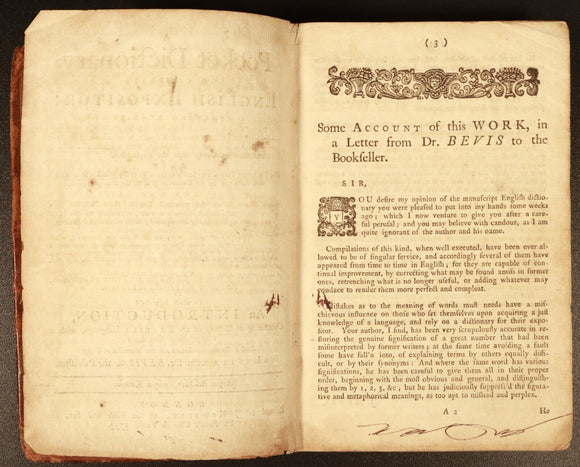 Pocket Dictionary
ENGLISH EXPOSITOR:
An INTRODUCTION,
( 3 )
Some ACCOUNT of this WORK, in
a Letter from Dr. BEVIS to the
Bookſeller.
SIR,
YOU deſire my opinion of the manuſcript Engliſh dictio-
nary you were pleaſed to put into my hands ſome weeks
ago; which I now venture to give you after a care-
ful peruſal; and you may believe with candour, as I am
quite ignorant of the author and his name.
Compilations of this kind, when well executed, have been ever al-
lowed to be of ſingular ſervice, and accordingly ſeveral of them have
appeared from time to time in Engliſh; for they are capable of con-
tinual improvement, by correcting what may be found amiſs in former
ones, retrenching what is no longer uſeful, or adding whatever may
conduce to render them more perfect and compleat.
Miſtakes as to the meaning of words muſt needs have a miſ-
chievous influence on thoſe who ſet themſelves upon acquiring a juſt
knowledge of a language, and rely on a dictionary for their expo-
ſitor. Your author, I find, has been very ſcrupulouſly accurate in re-
ſtoring the genuine ſignification of a great number that had been
miſinterpreted by former writers; at the ſame time avoiding a fault
ſome have fall'n into, of explaining terms by others equally diffi-
cult, or by their ſynonyms: And where the ſame word has various
ſignifications, he has been careful to give them all in their proper
order, beginning with the moſt obvious and general, and diſtinguiſh-
ing them by 1, 2, 3, &c; but he has judiciouſly ſuppreſs'd the figura-
tive and metaphorical meanings, as too apt to miſlead and perplex.
A 2 He